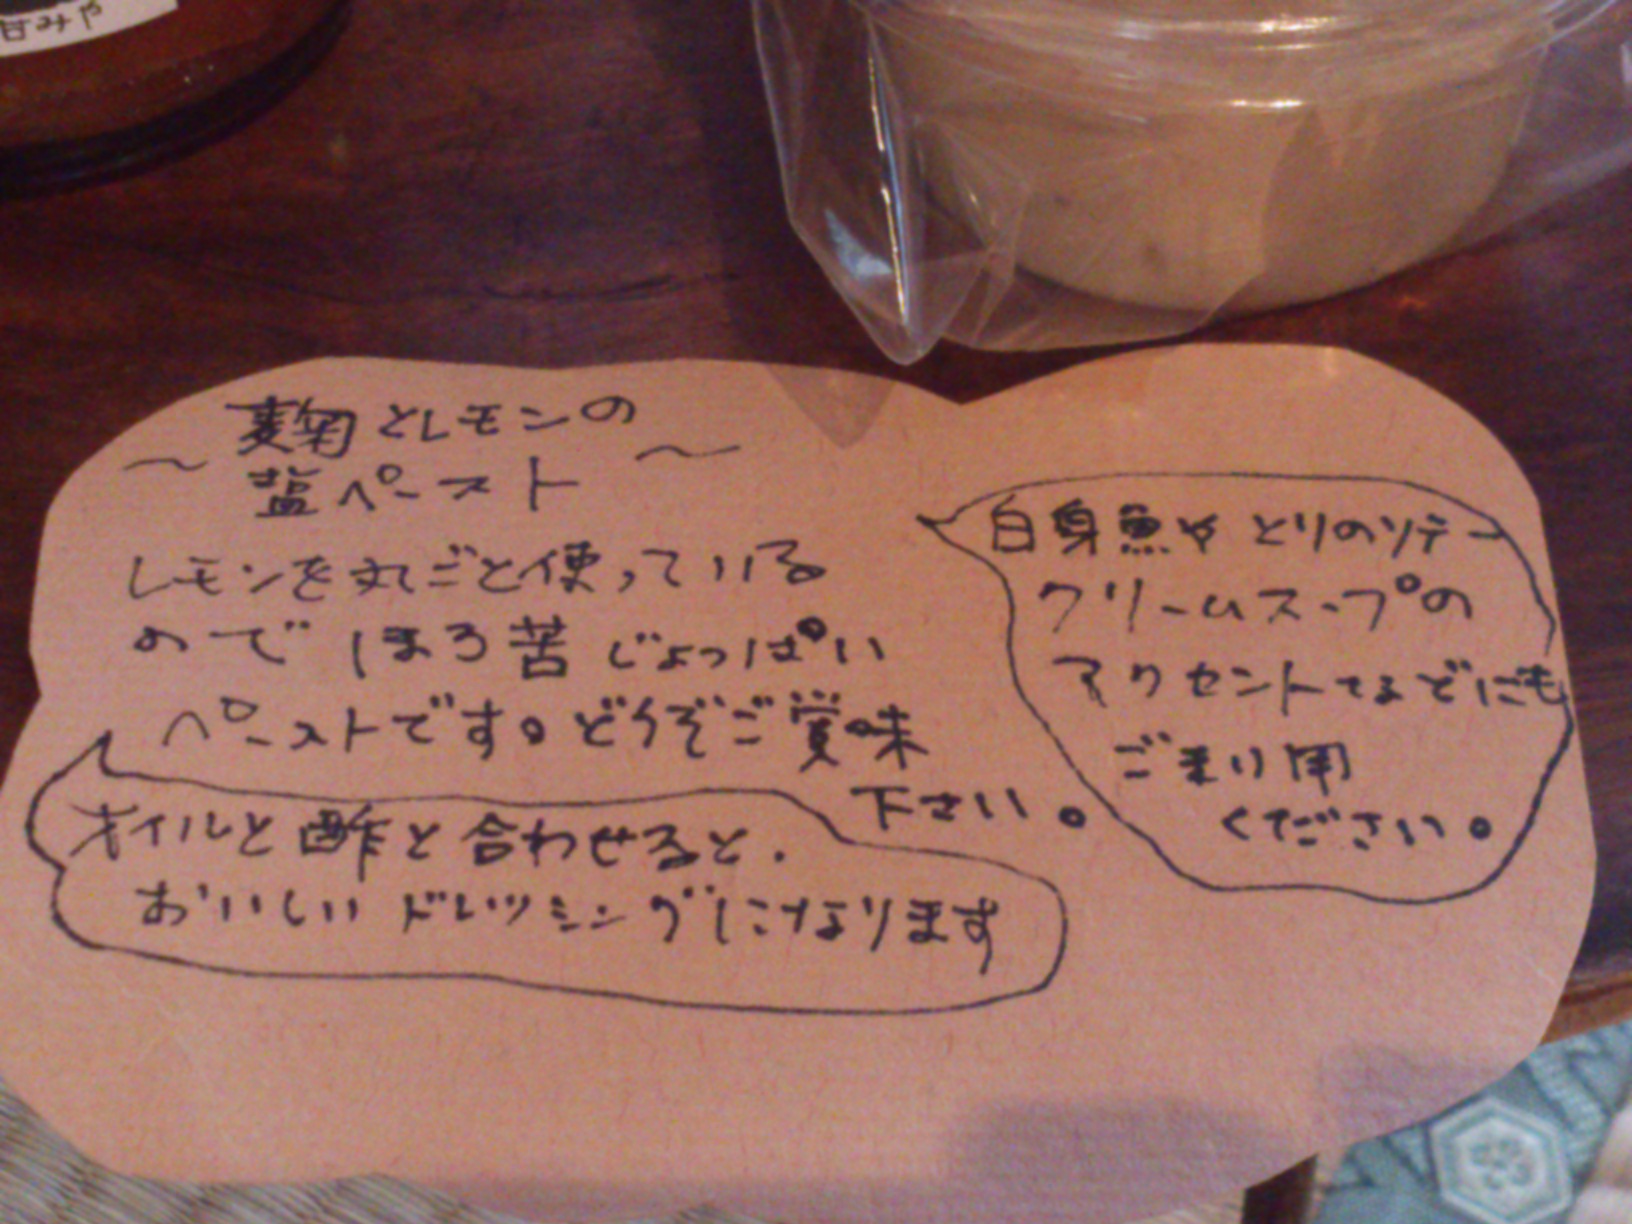 甘みや
〜 麹とレモンの 〜
塩ペースト
レモンを丸ごと使っている
ので ほろ苦じょっぱい
ペーストです。どうぞご賞味
下さい。
白身魚や とりのソテー
クリームスープの
アクセントなどにも
ご利用
ください。
オイルと酢と合わせると、
おいしいドレッシングになります